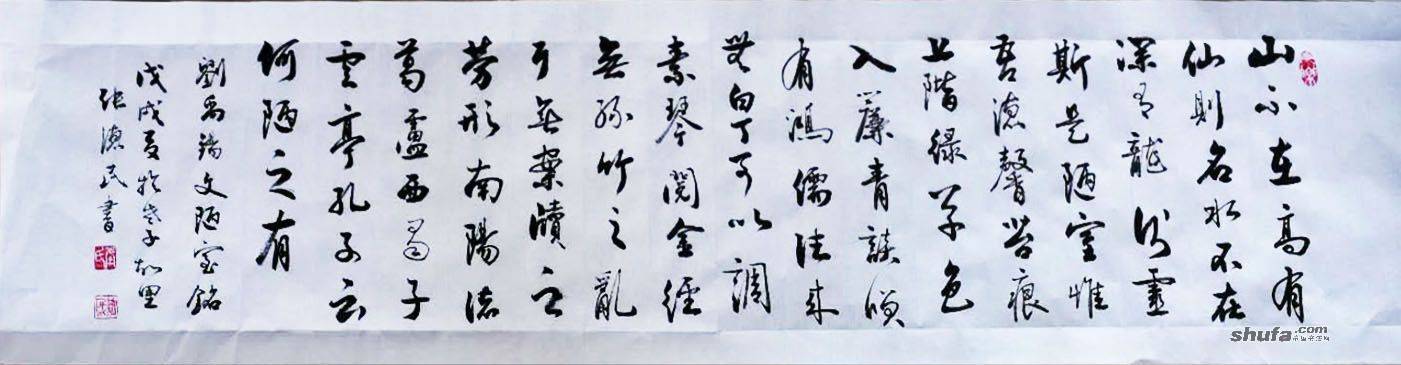 山不在高有
仙則名水不在
深有龍則靈
斯是陋室惟
吾德馨苔痕
上階綠草色
入簾青談笑
有鴻儒往來
無白丁可以調
素琴閱金經
無絲竹之亂
耳無案牘之
勞形南陽諸
葛廬西蜀子
雲亭孔子云
何陋之有
劉禹錫文陋室銘
戊戌夏於老子故里
張德民書
shufa.com